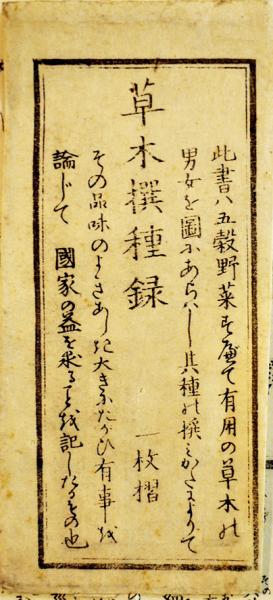 此書ハ五穀野菜を始て有用の草木の
男女を圖にあらハし其種の撰ミかたによりて
草木撰種録
一枚摺
その品味のよきあしき大きにたかひ有事を
論じて 國家の益を求ることを記したるもの也